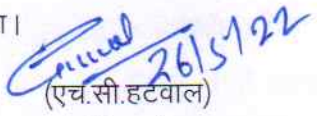 ा।
26/5/22
(एच.सी.हटवाल)